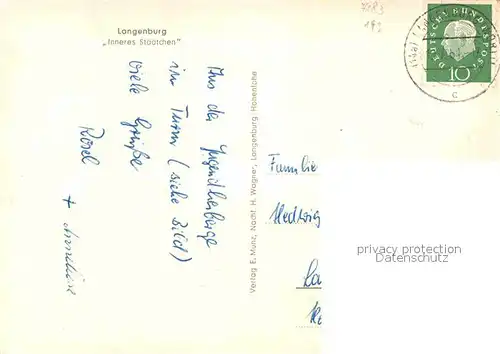 Langenburg
„Inneres Städtchen"
Aus der Jugendherberge
im Turm (siehe Bild)
viele Grüße
Rosel
+ Anneliese
Verlag E. Munz, Nachf. H. Wagner, Langenburg Hohenlohe
DEUTSCHE BUNDESPOST
10
c
Familie
Hedwig
La
privacy protection
Datenschutz